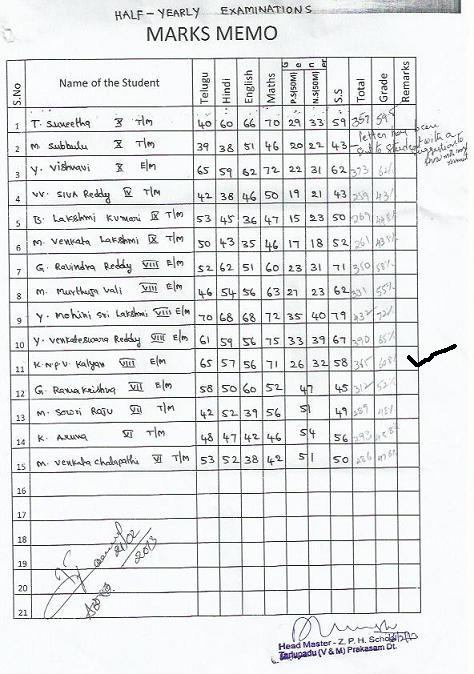 HALF-YEARLY EXAMINATIONS
MARKS MEMO
S.No Name of the Student Telugu Hindi English Maths Gener P.S(50M) N.S(50M) S.S Total Grade Remarks
1 T. Suneetha X T/M 40 60 66 70 29 33 59 357
letter has been
sent to student with a
suggestion to
2 M. Subbulu X T/M 39 38 51 46 20 22 43
3 Y. Vishnavi X E/M 65 59 62 72 22 31 62 373
4 VV. Siva Reddy IX T/M 42 38 46 50 19 21 43 259 43%
5 B. Lakshmi Kumari IX T/M 53 45 36 47 15 23 50 269
6 M. Venkata Lakshmi IX T/M 50 43 35 46 17 18 52 261
7 G. Ravindra Reddy VIII E/M 52 62 51 60 23 31 71 350 58%
8 M. Murthuja Vali VIII E/M 46 54 56 63 27 23 62 331 55%
9 Y. Mohini Sri Lakshmi VIII E/M 70 68 68 72 35 40 79 432 72%
10 Y. Venkateswara Reddy VIII E/M 61 59 56 75 33 39 67 390 65%
11 K.N.P.V. Kalyan VIII E/M 65 57 56 71 26 32 58 365
12 G. Rama Krishna VII E/M 58 50 60 52 47 45 312 52%
13 M. Sowri Raju VII T/M 42 52 39 56 51 49 289 48%
14 K. Aruna VI T/M 48 47 42 46 54 56 293
15 M. Venkata Chalapathi VI T/M 53 52 38 42 51 50 286
16
17
18
19
20
21
21/02
2013
Head Master - Z. P. H. School
Tarlupadu (V & M) Prakasam Dt.